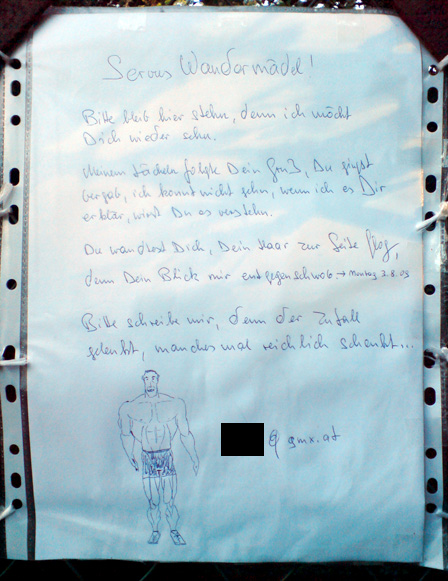 Servus Wandermädel!
Bitte bleib hier stehn, denn ich möcht
Dich wieder sehn.
Meinem Lächeln folgte Dein Gruß, Du gingst
bergab, ich konnt nicht gehn, wenn ich es Dir
erklär, wirst Du es verstehn.
Du wandtest Dich, Dein Haar zur Seite flog,
denn Dein Blick mir entgegenschwob → Montag 3.8.09
Bitte schreibe mir, denn der Zufall
gelenkt, manches mal reichlich schenkt...
@ gmx.at